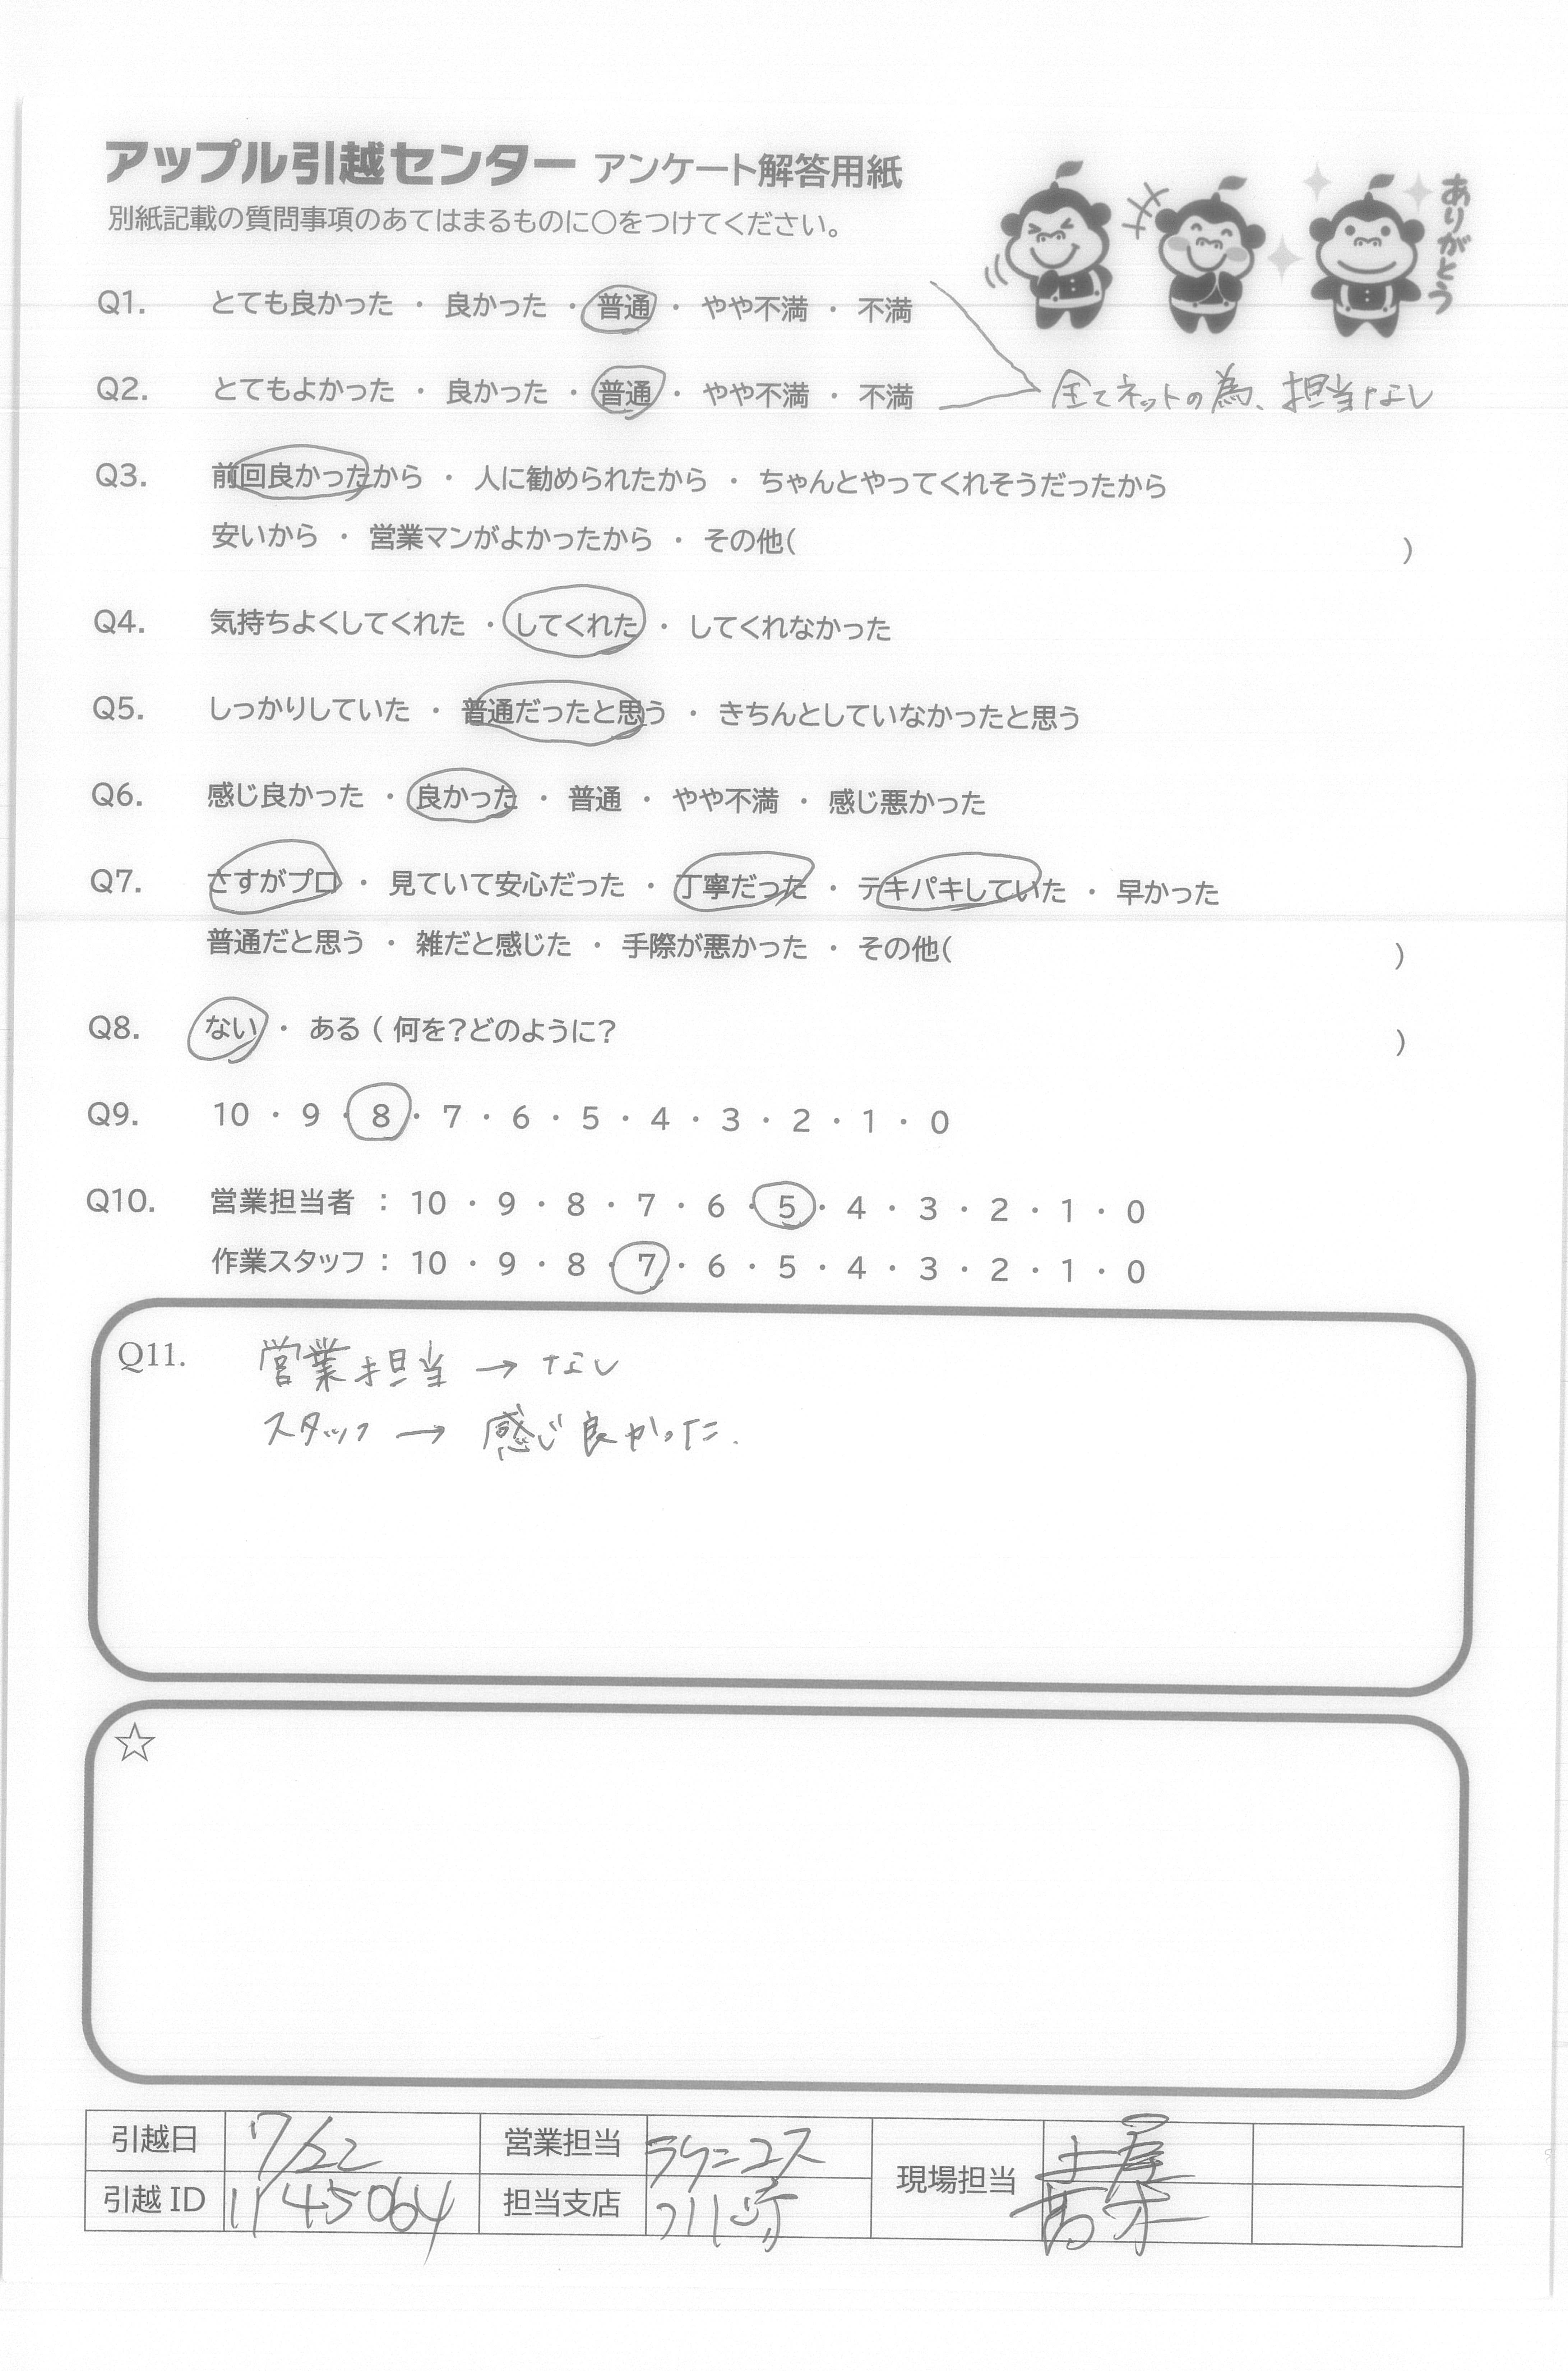 アップル引越センター アンケート解答用紙
別紙記載の質問事項のあてはまるものに○をつけてください。
ありがとう
Q1. とても良かった ・ 良かった ・ 普通 ・ やや不満 ・ 不満
Q2. とてもよかった ・ 良かった ・ 普通 ・ やや不満 ・ 不満
全てネットの為、担当なし
Q3. 前回良かったから ・ 人に勧められたから ・ ちゃんとやってくれそうだったから
安いから ・ 営業マンがよかったから ・ その他( )
Q4. 気持ちよくしてくれた ・ してくれた ・ してくれなかった
Q5. しっかりしていた ・ 普通だったと思う ・ きちんとしていなかったと思う
Q6. 感じ良かった ・ 良かった ・ 普通 ・ やや不満 ・ 感じ悪かった
Q7. さすがプロ ・ 見ていて安心だった ・ 丁寧だった ・ テキパキしていた ・ 早かった
普通だと思う ・ 雑だと感じた ・ 手際が悪かった ・ その他( )
Q8. ない ・ ある ( 何を?どのように? )
Q9. 10 ・ 9 ・ 8 ・ 7 ・ 6 ・ 5 ・ 4 ・ 3 ・ 2 ・ 1 ・ 0
Q10. 営業担当者 : 10 ・ 9 ・ 8 ・ 7 ・ 6 ・ 5 ・ 4 ・ 3 ・ 2 ・ 1 ・ 0
作業スタッフ : 10 ・ 9 ・ 8 ・ 7 ・ 6 ・ 5 ・ 4 ・ 3 ・ 2 ・ 1 ・ 0
Q11. 営業担当 → なし
スタッフ → 感じ良かった.
☆
引越日 7/22 営業担当 現場担当 土屋
引越ID 1145064 担当支店 川崎